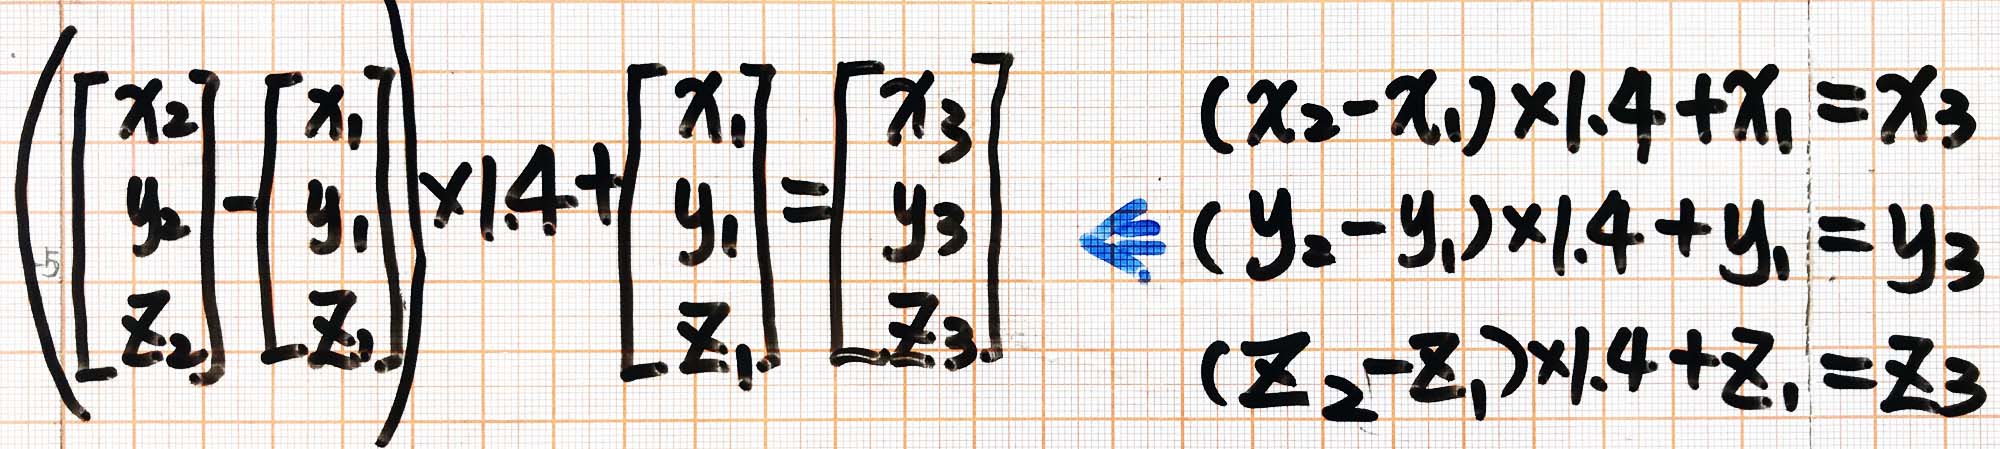 ([x₂ y₂ z₂] - [x₁ y₁ z₁]) × 1.4 + [x₁ y₁ z₁] = [x₃ y₃ z₃]
(x₂-x₁)×1.4+x₁=x₃
(y₂-y₁)×1.4+y₁=y₃
(z₂-z₁)×1.4+z₁=z₃